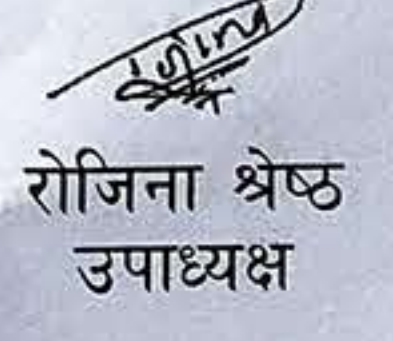 रोजिना श्रेष्ठ
उपाध्यक्ष